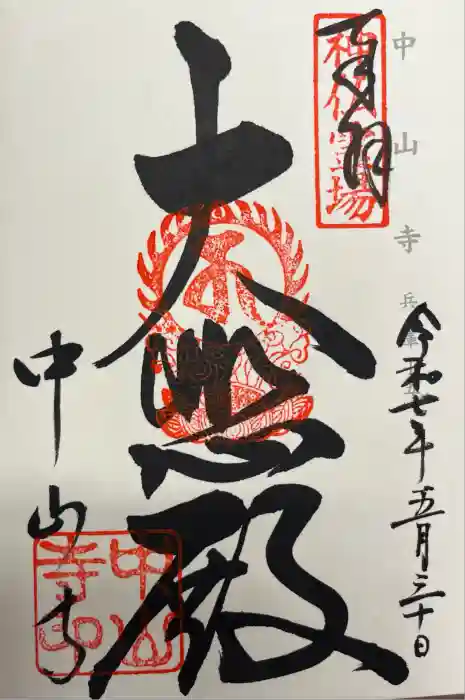 中山寺
兵庫
奉拝
神仏霊場
令和七年五月三十日
大悲殿
中山寺
中山寺印